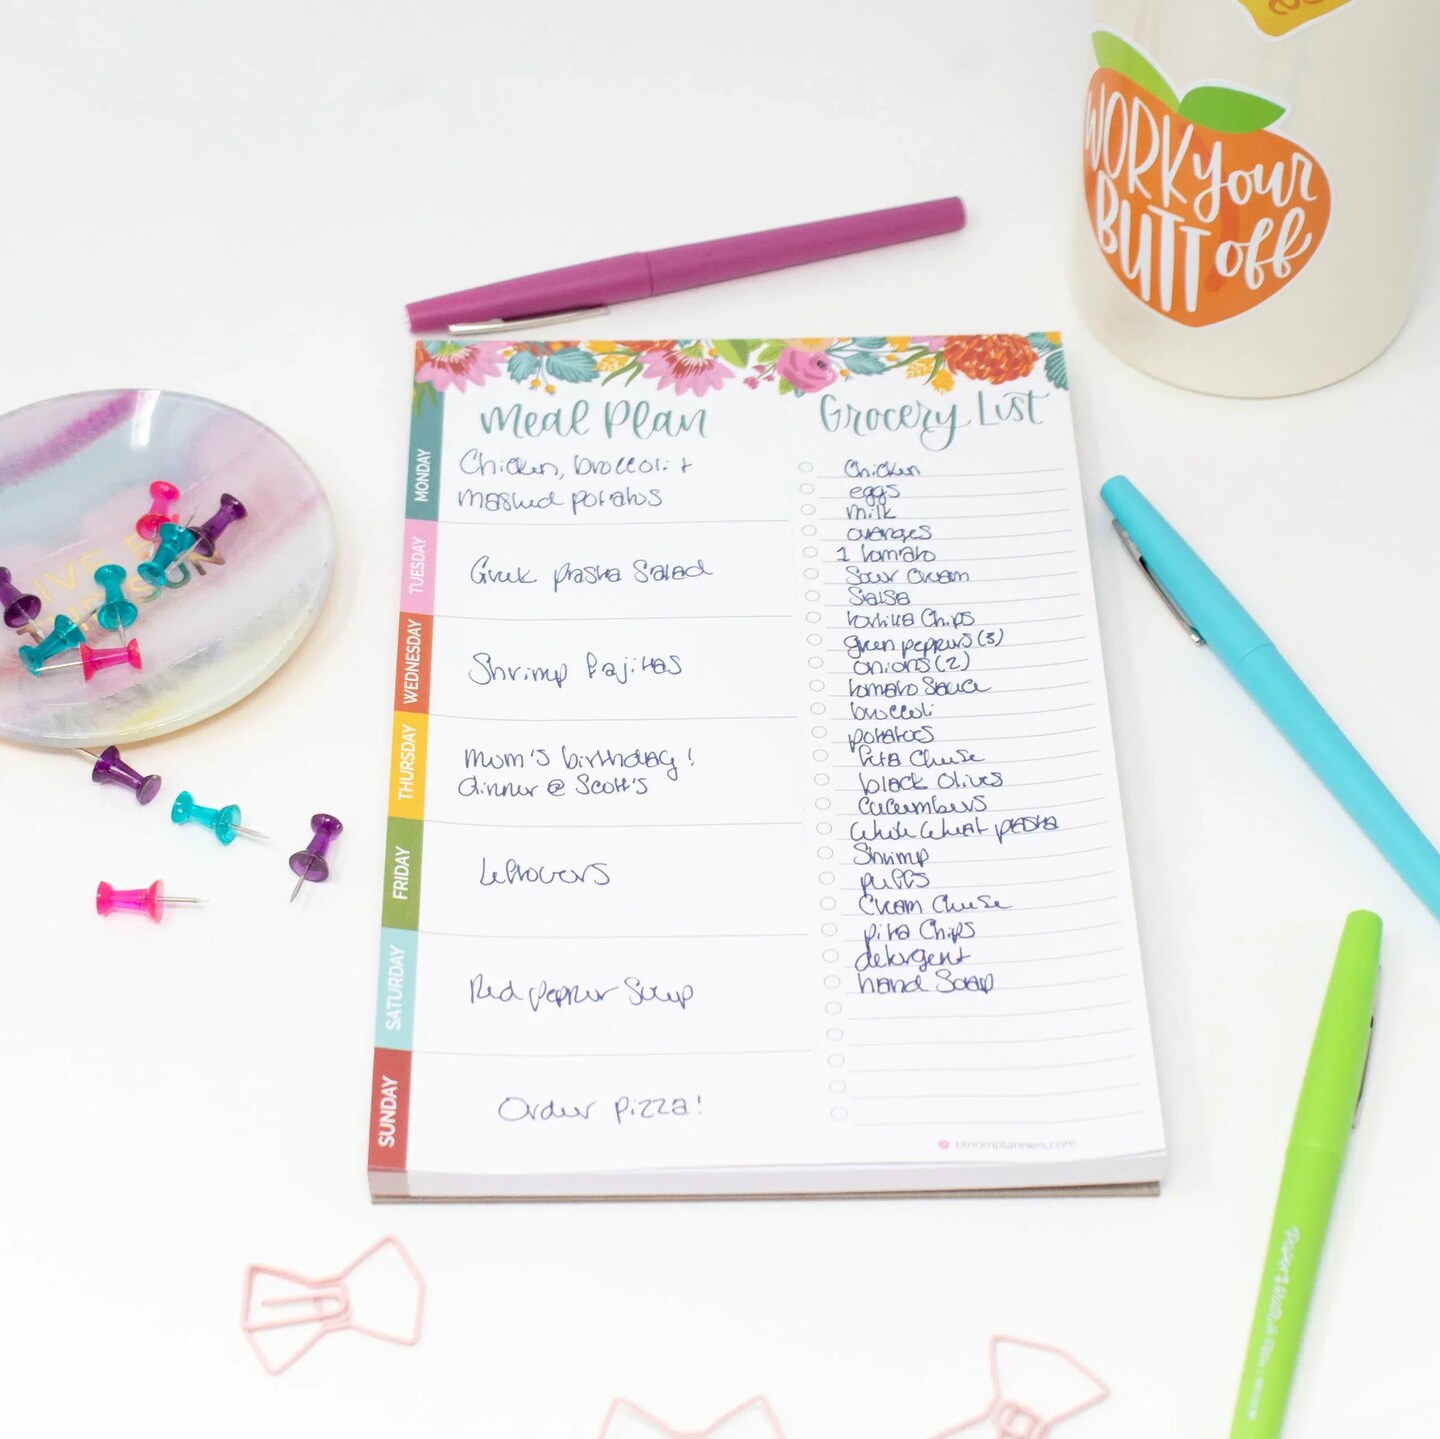 WORK your
BUTT off
Meal Plan
MONDAY
Chicken, broccoli +
mashed potatoes
TUESDAY
Greek pasta Salad
WEDNESDAY
Shrimp fajitas
THURSDAY
Mom's birthday!
dinner @ Scott's
FRIDAY
Leftovers
SATURDAY
Red pepper Soup
SUNDAY
Order pizza!
Grocery List
Chicken
eggs
milk
oranges
1 tomato
Sour Cream
Salsa
tortilla Chips
green peppers (3)
onions (2)
tomato Sauce
broccoli
potatoes
feta Cheese
black Olives
Cucumbers
whole wheat pasta
Shrimp
puffs
Cream Cheese
pita Chips
detergent
hand Soap
bloomplanners.com